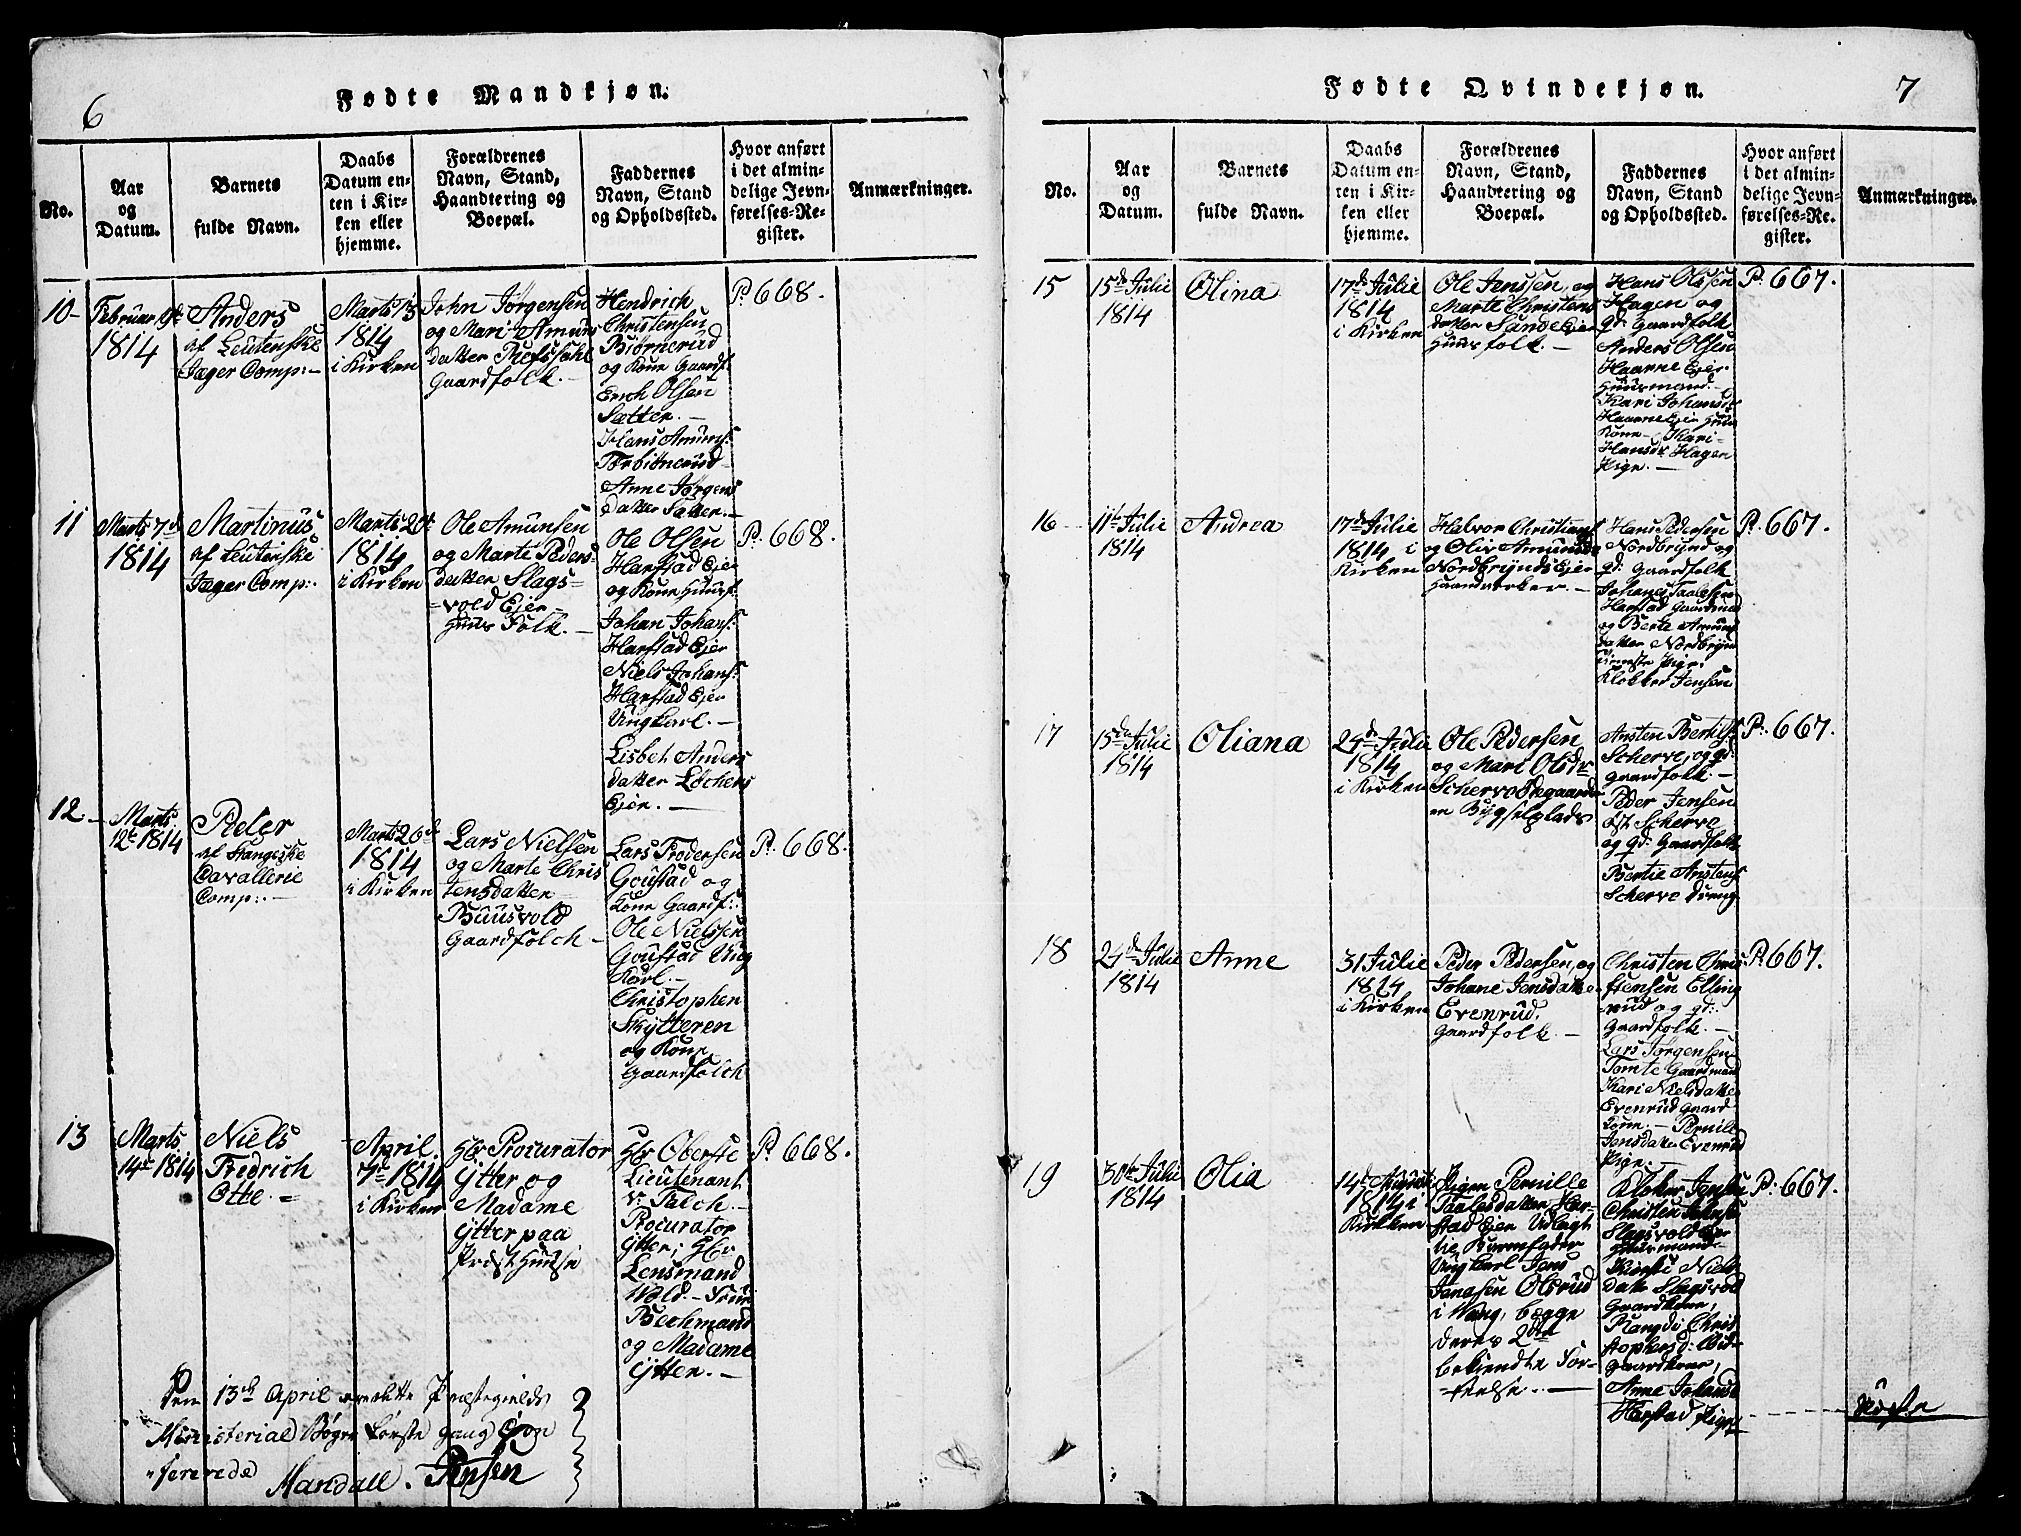 6
Fødte Mandkjøn.
No.
Aar
og
Datum.
Barnets
fulde Navn.
Daabs
Datum en-
ten i Kir-
ken eller
hjemme.
Forældrenes
Navn, Stand,
Haandtering og
Boepæl.
Faddernes
Navn, Stand
og Opholdssted.
Hvor anført
i det almin-
delige Jevn-
førelses-Re-
gister.
Anmærkninger.
10
Februar 9de
1814
Anders
af Leutenske
Jæger Comp:
Marts 13
1814
i Kirken
John Jørgensen
og Mari Amuns
datter
Gaardfolk.
Hendrich
Christensen
Biørnerud
og Kone Gaardf:
Erich Olsen
Sætter.
Hans Amuns:
Torbiørnerud
Anne Jørgens
datter Sætter.
P. 668.
11
Marts 7de
1814
Martinus
af Leutenske
Jæger Comp:
Marts 20de
1814
i Kirken
Ole Amunsen
og Marte Peders-
datter Slags-
=vold Ejer
Huus Folk.
Ole Olsen
Harstad Ejer
og Kone Huusf.
Johan Johans:
Harstad Ejer
Niels Johans:
Harstad Ejer
Ungkarl.
Lisbet Anders
datter Løchens
Ejer.
P. 668.
12
Marts
12te 1814
Peder
af Stangeske
Cavallerie
Comp:
Marts 20de
1814
i Kirken
Lars Nielsen
og Marte Chris
tensdatter
Buusvold
Gaardfolch
Lars Frodersen
Goustad og
Kone Gaardf:
Ole Nielssen
Goustad Ung
Karl.
Christopher
Skytteren
og Kone
Gaardfolch
P. 668.
13
Marts
14de 1814
Niels
Fredrich
Otte.
April
7de 1814
i Kirken
Hr Procurator
Ytter og
Madame
Ytter paa
Præst Huuse
Hr Oberste
Lieutenant
v. Falch.
Procurator
Ytter; Hr
Lensmand
Wold. Frue
Bechmand
og Madame
Ytter.
P. 668.
Den 13de April Præstegields
Ministerial Bøger første gang Con
fererede Mandall. Jensen
7
Fødte Qvindekjøn.
No.
Aar
og
Datum.
Barnets
fulde Navn.
Daabs
Datum en-
ten i Kir-
ken eller
hjemme.
Forældrenes
Navn, Stand,
Haandtering og
Boepæl.
Faddernes
Navn, Stand
og Opholdssted.
Hvor anført
i det almin-
delige Jevn-
førelses-Re-
gister.
Anmærkninger.
15
15de Julie
1814
Olina
17de Julie
1814
i Kirken
Ole Jenssen, og
Marte Christens
datter Sande Ejer
Huusfolk.
Hans Olssen
Hagen og
qd: Gaardfolk
Anders Olsen
Haarne Ejer
Huusmand.
Kari Johansdr
Haarne Ejer Huus
Kone. Kari
Hansdr Hagen
Pige.
P. 667.
16
11te Julie
1814
Andrea
17de Julie
1814 i
Kirken
Halvor Christians
og Oliv Amunsdr
Nordbrynds Ejer
Haandverker.
Hans Pedersen
Nordbrynd og
qd: Gaardfolk
Johanes Taalesen
Harstad Gaardmand
og Berte Amuns
datter Nordbryn
tieneste Pige.
Klokker Jensen
P. 667.
17
15de Julie
1814
Oliana
24de Julie
1814
i Kirken
Ole Pedersen
og Mari Olsdr
Schervo Ødegaarde
en Bygselplads
Ansten Bertils
Scherve, og qd:
gaardfolk.
Peder Jensen
Øst Scherve
og qd: Gaardfolk
Bertil Anstens
Scherve dreng
P. 667.
18
24de Julie
1814
Anne
31 Julie
1814
i Kirken
Peder Pedersen, og
Johane Jensdatter
Evenrud.
Gaardfolk.
Christen Chris
stensen Elling
rud og qd:
Gaardfolk.
Lars Jørgensen
Tomte Gaardmand
Kari Nielsdatter
Evenrud Gaard
Kone. Pernile
Jensdatter Evenrud
Pige.
P. 667.
19
30te Julie
1814
Olia
14de August
1814 i
Kirken
Pigen Pernille
Taalesdatter Har-
stad Ejer Udlagt
til Barnefader
Ungkarl Jens
Jensen Olsrud
i Wang, begge
deres 2den
bekiendte For-
=seelse.
Kloker Jensen
Christen Johnsen
Slagsvold Ejer
Huusmand.
Kirsti Niels
datter Slagsvold
Gaardkone,
Rangdi Chris
stophersd:
Gaardkone,
Anne Johansd
Harstad Pige
P. 667.